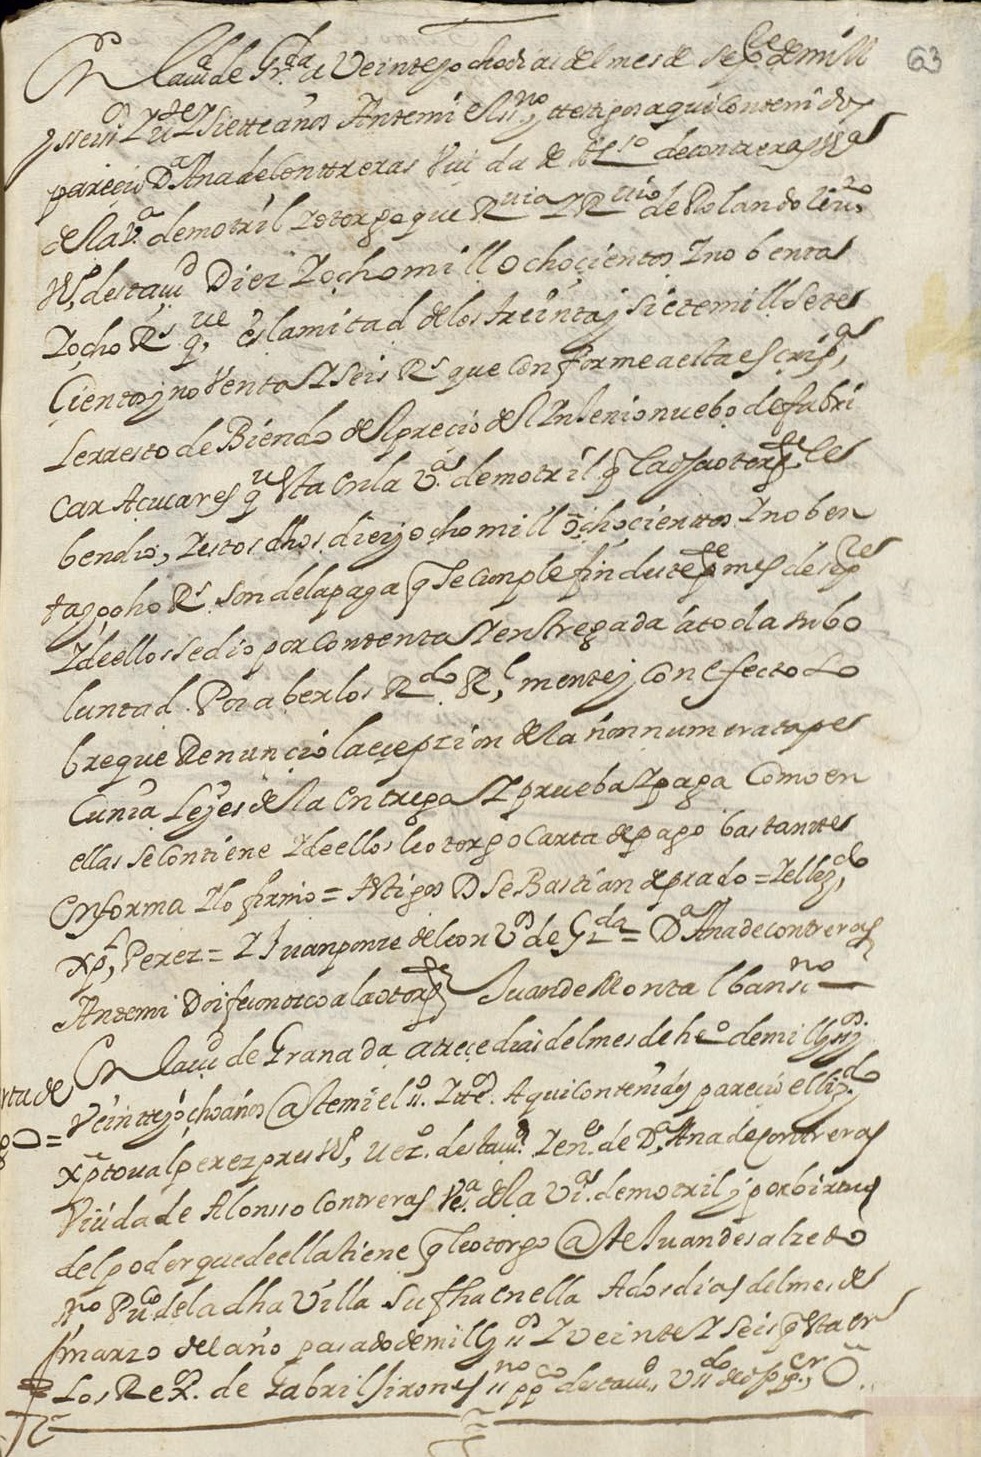 63
En la ciud de Grda a Veinte y ocho dias del mes de Sepe de mill
y seisos y Ute y Siette años Antemi el ssno y testigos aqui contenidos
parecio Da Ana de Conttreras Viuda de Also de contreras Va
de la Va de motril y otorgo que Rvia y Rvio de Rolando
Vo desta ciud Diez y ocho mill ochocientos y nobenta
y ocho Rs que es la mitad de los treinta y siete mill sete
cientos y noventa y seis Rs que conforme a esta escripa
se resto debiendo del precio del Ynsenio nuebo de fabri
car Açucares q esta en la Va de motril q la otorgte les
bendio, y estos dhos diez y ocho mill ochocientos y noben
ta y ocho Rs son de la paga q se cumple fin deste mes de sepe
y de ellos se dio por contenta y entregada a toda su bo
luntad. Por aberlos Rdo Rl mente y con efecto so
bre que Renunçio la eçepzion de la non numerata pe
cunia Leyes de la Entrega y prueba y paga Como en
ellas se Contiene y de ellos le otorgo Carta de pago bastante
En forma y lo firmo = testigos D SeBastian de prado = y el liz,do
Xpl, Perez = y Juan ponze de leon Vos de Grda = Da Ana de contreras
Antemi Doi fe conozco a la otorgte Juan de Montalban ssno
En la ciud de Granada a treçe dias del mes de heo de mill y ssos
rta de
Veintte y ocho años Antemi el sso y tes Aqui Contenidos pareçio el lizdo
go =
Xptoval perez presVo, vezo desta ciud y en ne de Da Ana de Contreras
Viuda de Alonso Contreras Vea de la Va de motril y por birtud
del poder que de ella tiene q le otorgo Ante Juan de salzedo
sno Puo de la dha Villa su fha en ella A dos dias del mes de
marzo del año pasado de mill y ssos y Veinte y seis q esta en
Los Rexos de Gabriel sirones ssno ppco desta ciud